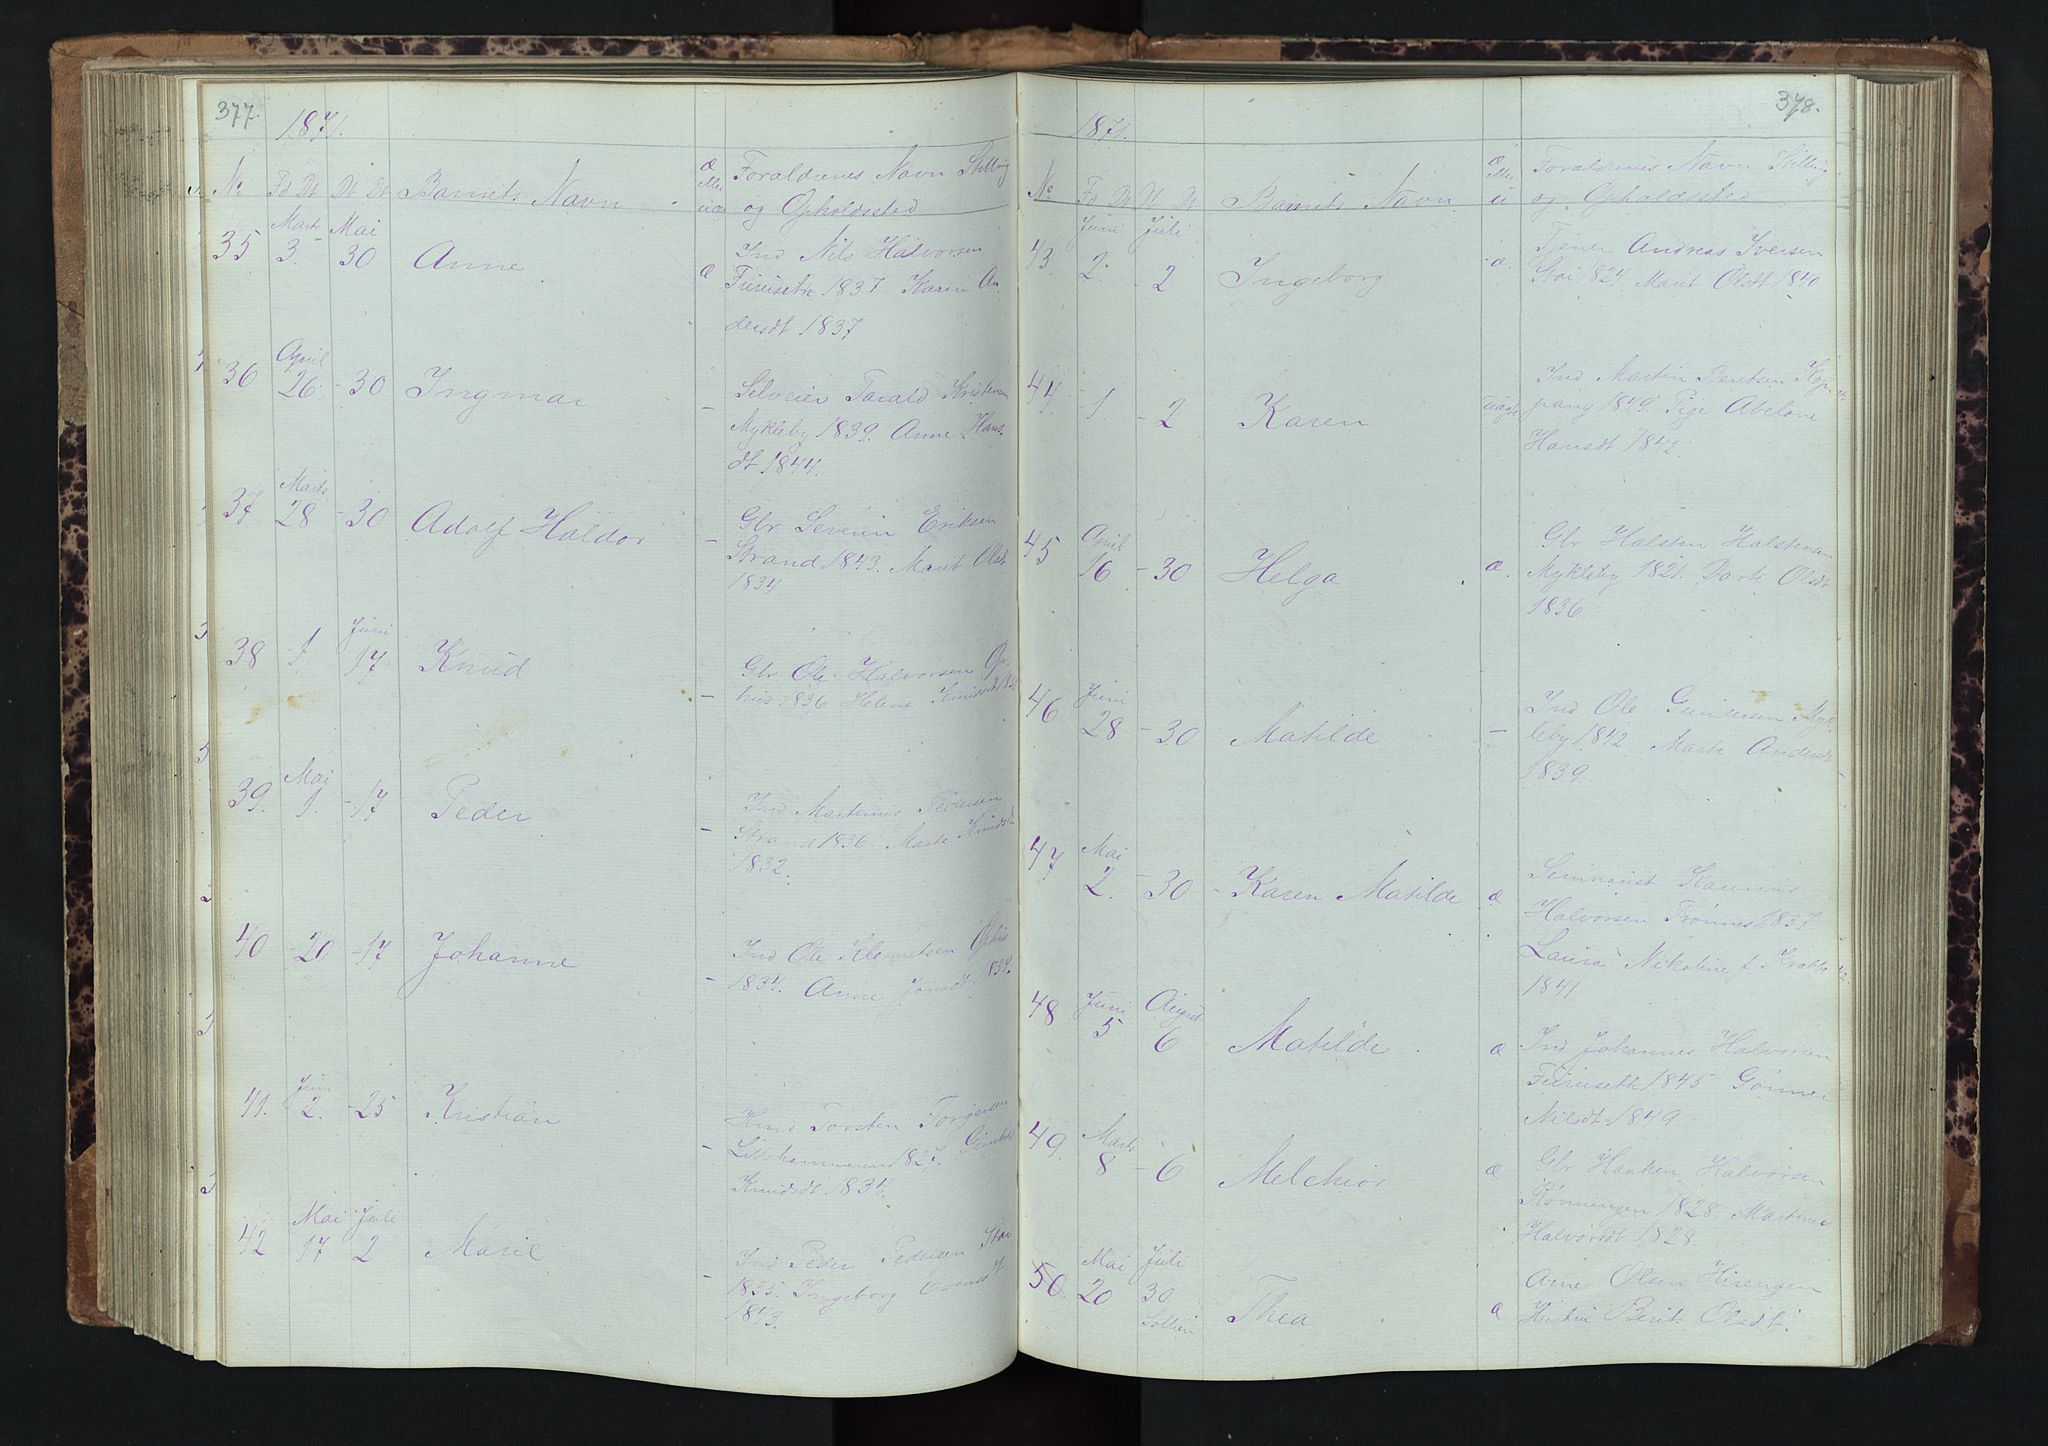 377.
1871.
No Fd Dt Dt Dt Barnets Navn æ eller uæ Forældrenes Navn Stilling
og Opholdssted
35 Marts 3. Mai 30 Anne æ Ind Nils Halvorsen
Furuseth 1837 Karen An-
dersdt 1837
36 April 26 - 30 Ingmar - Selveier Tarald Kristensen
Mykleby 1839. Anne Hans-
dt 1844.
37 Marts 28 - 30 Adolf Haldor - Gbr Severin Eriksen
Strand 1843. Marit Olsdt
1834
38 - 1 Juni 17 Knud - Gbr Ole Halvorsen Op-
hus 1836 Helene Knudsdt
39. Mai 1. - 17 Peder - Ind Martinus Pedersen
Strand 1836 Marte Knudsdt
1832.
40 - 20 - 17 Johanne - Ind Ole Klemetsen Ophus
1834. Anne Jonsdt 1839.
41. Juni 2. - 25 Kristian - Hmd Torsten Torgersen
Lillehammeren 1827. Gunhild
Knudsdt. 1834.
42 Mai 17 Juli 2 Marie - Ind Peder Pedersen Stai
1835. Ingeborg Evensdt
1843.
378.
1871.
No Fd Dt Dt Dt Barnets Navn æ eller u Forældrenes Navn Stilling
og Opholdssted
43 Juni 2. Juli - 2 Ingeborg æ. Tjener Andreas Iversen
Stai 1824. Marit Olsdt 1840
44 - 1 - 2 Karen uægte Ind Martin Bentsen Kop-
pang 1849. Pige Abelone
Hansdt 1842.
45 April 16 - 30 Helga æ. Gbr Halsten Halstensen
Mykleby 1821. Dorte Olsdt
1836.
46 Juni 28 - 30 Matilde - Ind Ole Gundersen Myk-
leby 1842 Marte Andersdt
1839.
47 Mai 2. - 30 Karen Matilde æ Seminarist
Halvorsen Trønnes 1837
Laura Nikoline f
1841
48 Juni 5 August 6 Matilde æ Ind Johannes Halvorsen
Furuseth 1845 Gønner
Nilsdt 1849
49. Marts 8 - 6 Melchior æ Gbr Haaken Halvorsen
Rønningen 1828. Martinia
Halvorsdt 1828.
50. Mai 20 Juli 30 Sollien Thea æ Arne Olsen Hirengen
Hustru Berit Olsdt.